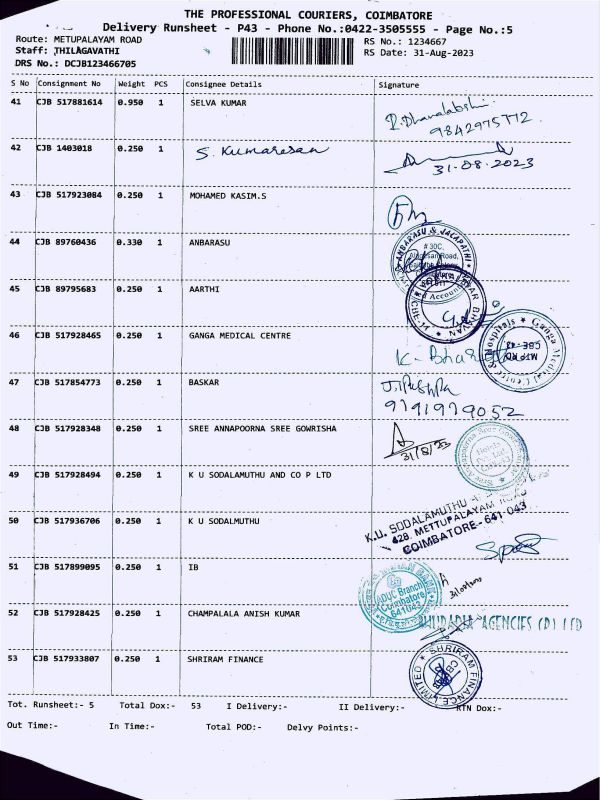 THE PROFESSIONAL COURIERS, COIMBATORE
Delivery Runsheet - P43 - Phone No.:0422-3505555 - Page No.:5
Route: METUPALAYAM ROAD
RS No.: 1234667
Staff: THILAGAVATHI
RS Date: 31-Aug-2023
DRS No.: DCJB123466705
S No Consignment No Weight PCS Consignee Details Signature
41 CJB 517881614 0.950 1 SELVA KUMAR
9842975772
42 CJB 1403018 0.250 1 S. Kumaresan
31-08-2023
43 CJB 517923084 0.250 1 MOHAMED KASIM.S
44 CJB 89760436 0.330 1 ANBARASU
ANBARASU & JALAPATHI
# 30C,
45 CJB 89795683 0.250 1 AARTHI
46 CJB 517928465 0.250 1 GANGA MEDICAL CENTRE
Ganga Medical Centre & Hospitals
MTP RD
CBE-43
47 CJB 517854773 0.250 1 BASKAR
J. Pushpa
9191919052
48 CJB 517928348 0.250 1 SREE ANNAPOORNA SREE GOWRISHA
31/8/23
49 CJB 517928494 0.250 1 K U SODALAMUTHU AND CO P LTD
50 CJB 517936706 0.250 1 K U SODALMUTHU
K.U. SODALAMUTHU
628, METTUPALAYAM ROAD
COIMBATORE - 641 043
51 CJB 517899095 0.250 1 IB
INDIAN BANK
ADUC Branch
Coimbatore
641043
52 CJB 517928425 0.250 1 CHAMPALALA ANISH KUMAR
AGENCIES (P) LTD
53 CJB 517933807 0.250 1 SHRIRAM FINANCE
SHRIRAM FINANCE LIMITED
Tot. Runsheet:- 5 Total Dox:- 53 I Delivery:- II Delivery:- RTN Dox:-
Out Time:- In Time:- Total POD:- Delvy Points:-